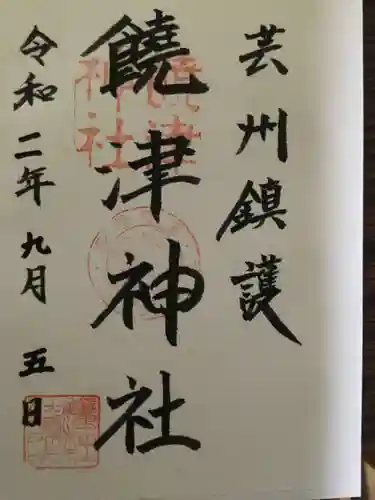 芸州鎮護
饒津神社
令和二年九月五日